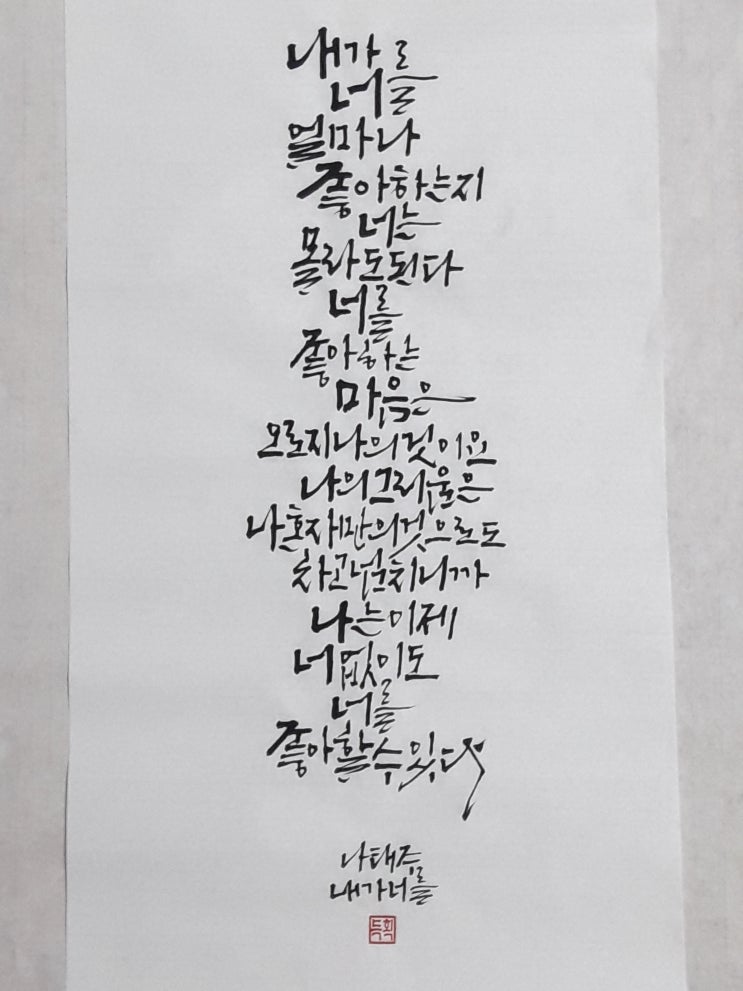 내가
너를
얼마나
좋아하는지
너는
몰라도된다
너를
좋아하는
마음은
오로지나의것이요
나의그리움은
나혼자만의것으로도
차고넘치니까
나는이제
너없이도
너를
좋아할수있다
나태주
내가너를